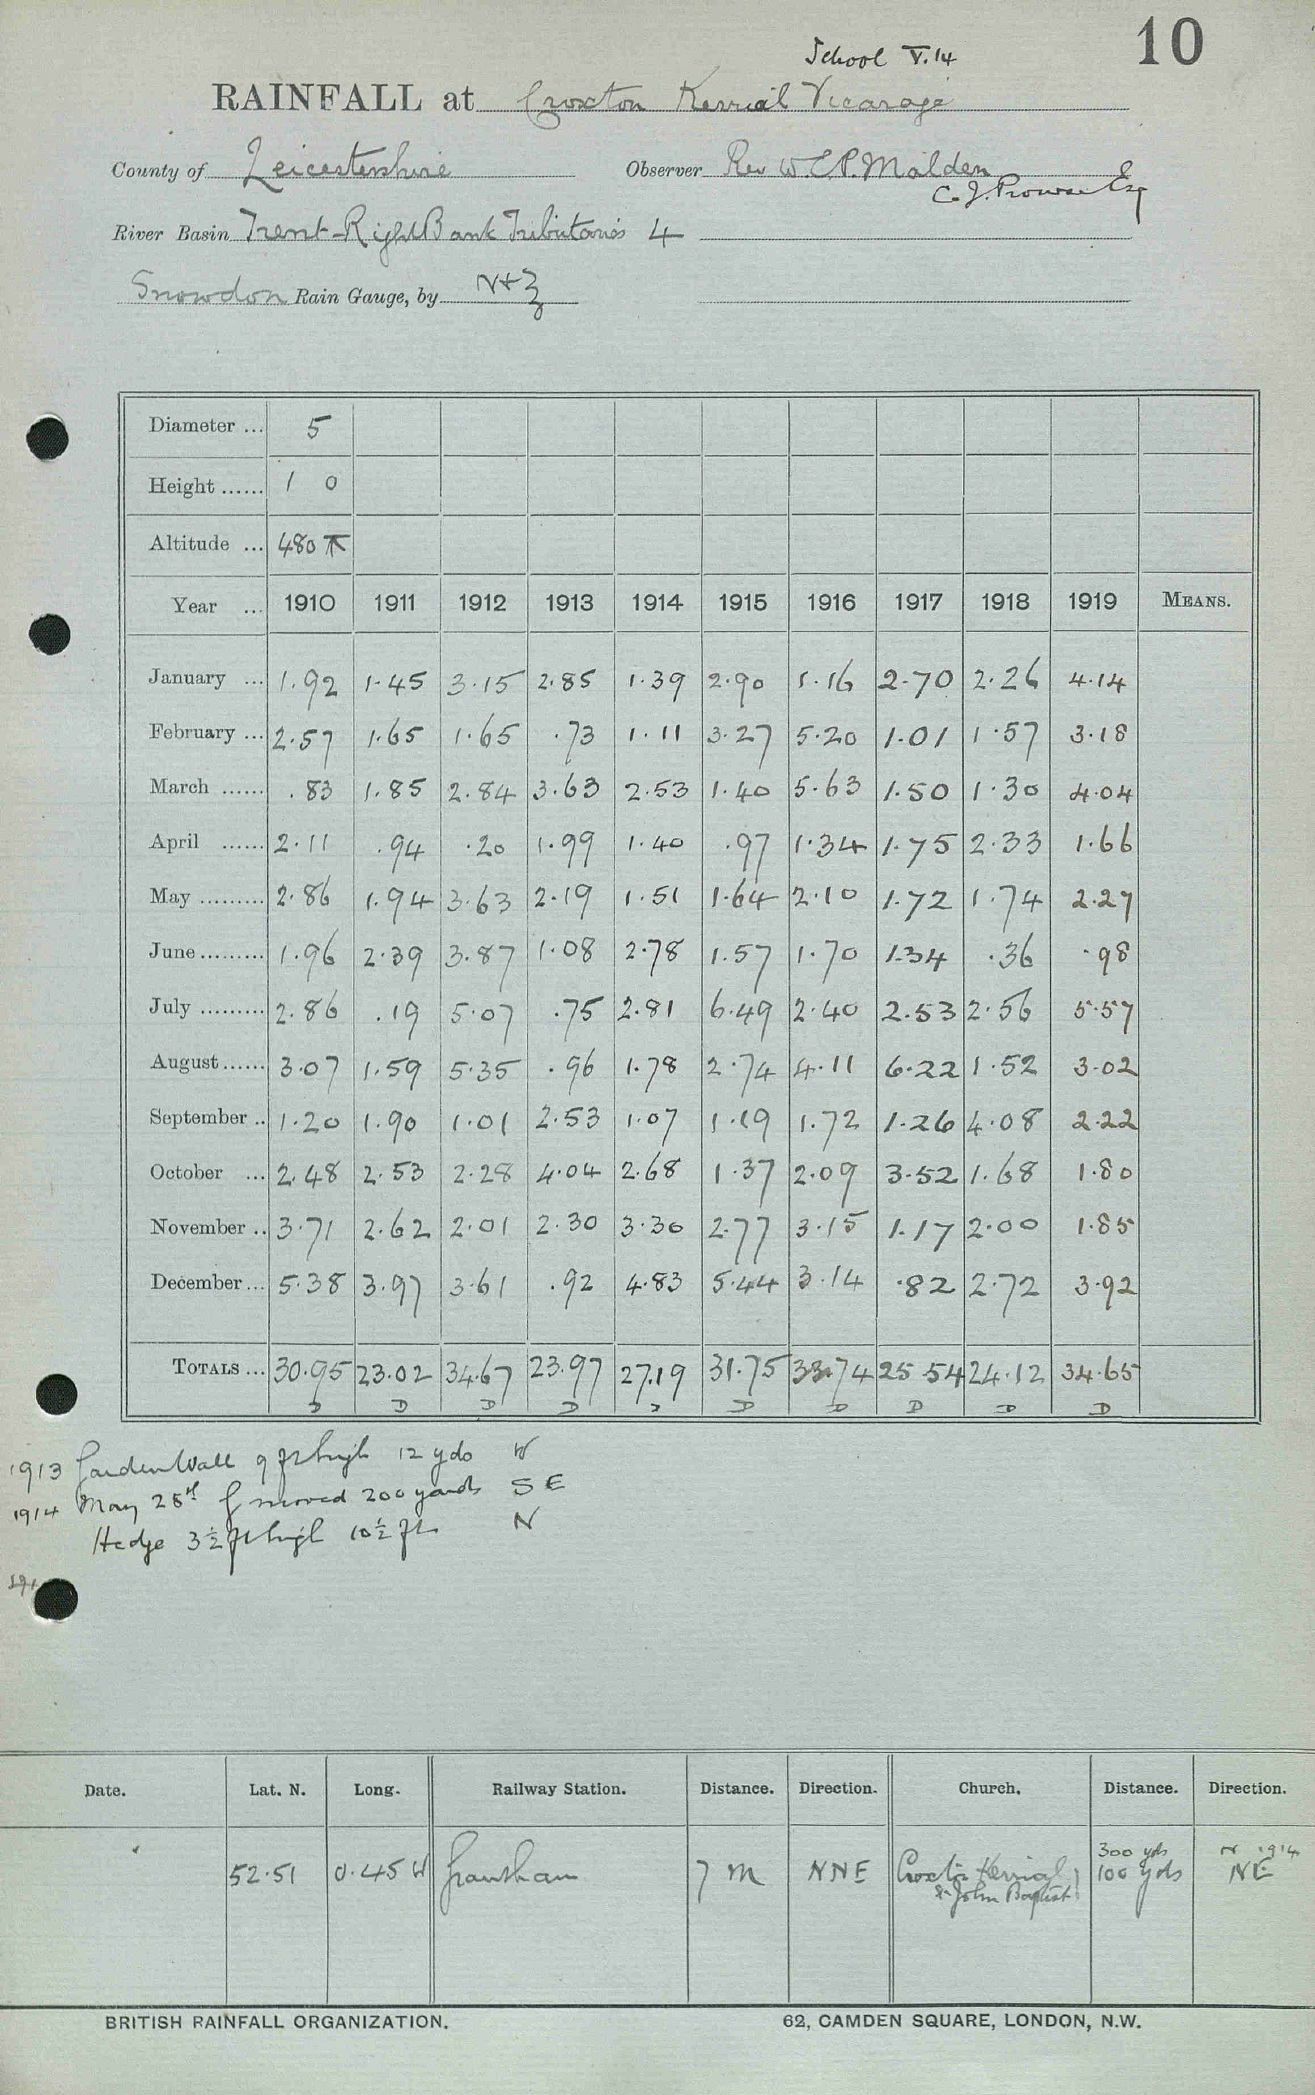 10
School V.14
RAINFALL at Croxton Kerrial Vicarage
County of Leicestershire Observer Rev W.C.P. Malden
C. J. Prowse Esq
River Basin Trent-Right Bank Tributaries 4
Snowdon Rain Gauge, by N+Z
Diameter ... 5
Height ...... 1 0
Altitude ... 480
Year ... 1910 1911 1912 1913 1914 1915 1916 1917 1918 1919 MEANS.
January ... 1.92 1.45 3.15 2.85 1.39 2.90 1.16 2.70 2.26 4.14
February ... 2.57 1.65 1.65 .73 1.11 3.27 5.20 1.01 1.57 3.18
March ...... .83 1.85 2.84 3.63 2.53 1.40 5.63 1.50 1.30 4.04
April ...... 2.11 .94 .20 1.99 1.40 .97 1.34 1.75 2.33 1.66
May ......... 2.86 1.94 3.63 2.19 1.51 1.64 2.10 1.72 1.74 2.27
June ......... 1.96 2.39 3.87 1.08 2.78 1.57 1.70 1.34 .36 .98
July ......... 2.86 .19 5.07 .75 2.81 6.49 2.40 2.53 2.56 5.57
August ...... 3.07 1.59 5.35 .96 1.78 2.74 4.11 6.22 1.52 3.02
September .. 1.20 1.90 1.01 2.53 1.07 1.19 1.72 1.26 4.08 2.22
October ... 2.48 2.53 2.28 4.04 2.68 1.37 2.09 3.52 1.68 1.80
November .. 3.71 2.62 2.01 2.30 3.30 2.77 3.15 1.17 2.00 1.85
December ... 5.38 3.97 3.61 .92 4.83 5.44 3.14 .82 2.72 3.92
TOTALS ... 30.95 23.02 34.67 23.97 27.19 31.75 33.74 25.54 24.12 34.65
D D D D D D D D D D
1913 Garden Wall 9 ft high 12 yds W
1914 May 28th G moved 200 yards SE
Hedge 3½ ft high 10½ ft N
191
Date. Lat. N. Long. Railway Station. Distance. Direction. Church. Distance. Direction.
300 yds N 1914
52.51 0.45 W Grantham 7 m NNE Croxton Kerrial 100 yds NE
St John Baptist
BRITISH RAINFALL ORGANIZATION. 62, CAMDEN SQUARE, LONDON, N.W.